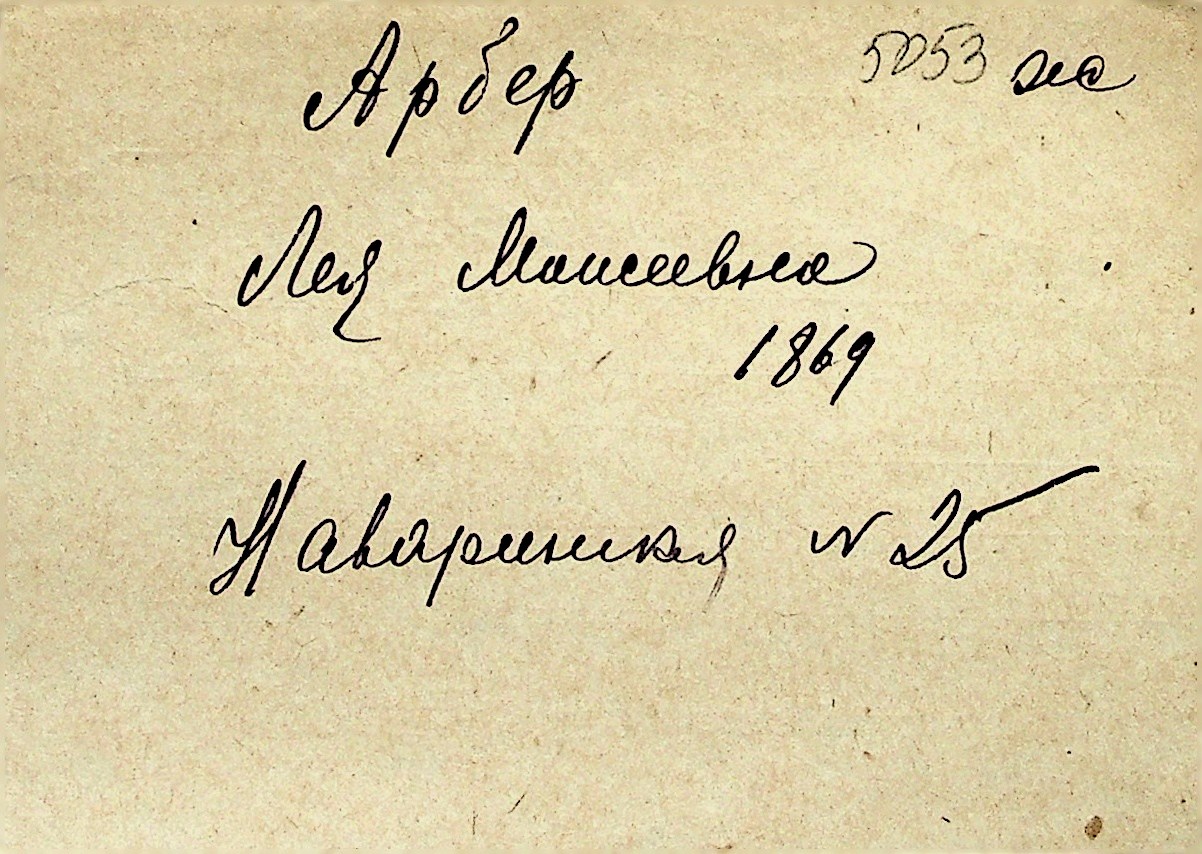 Арбер 5053
Лея Моисеевна
1869
Наваринская N 25